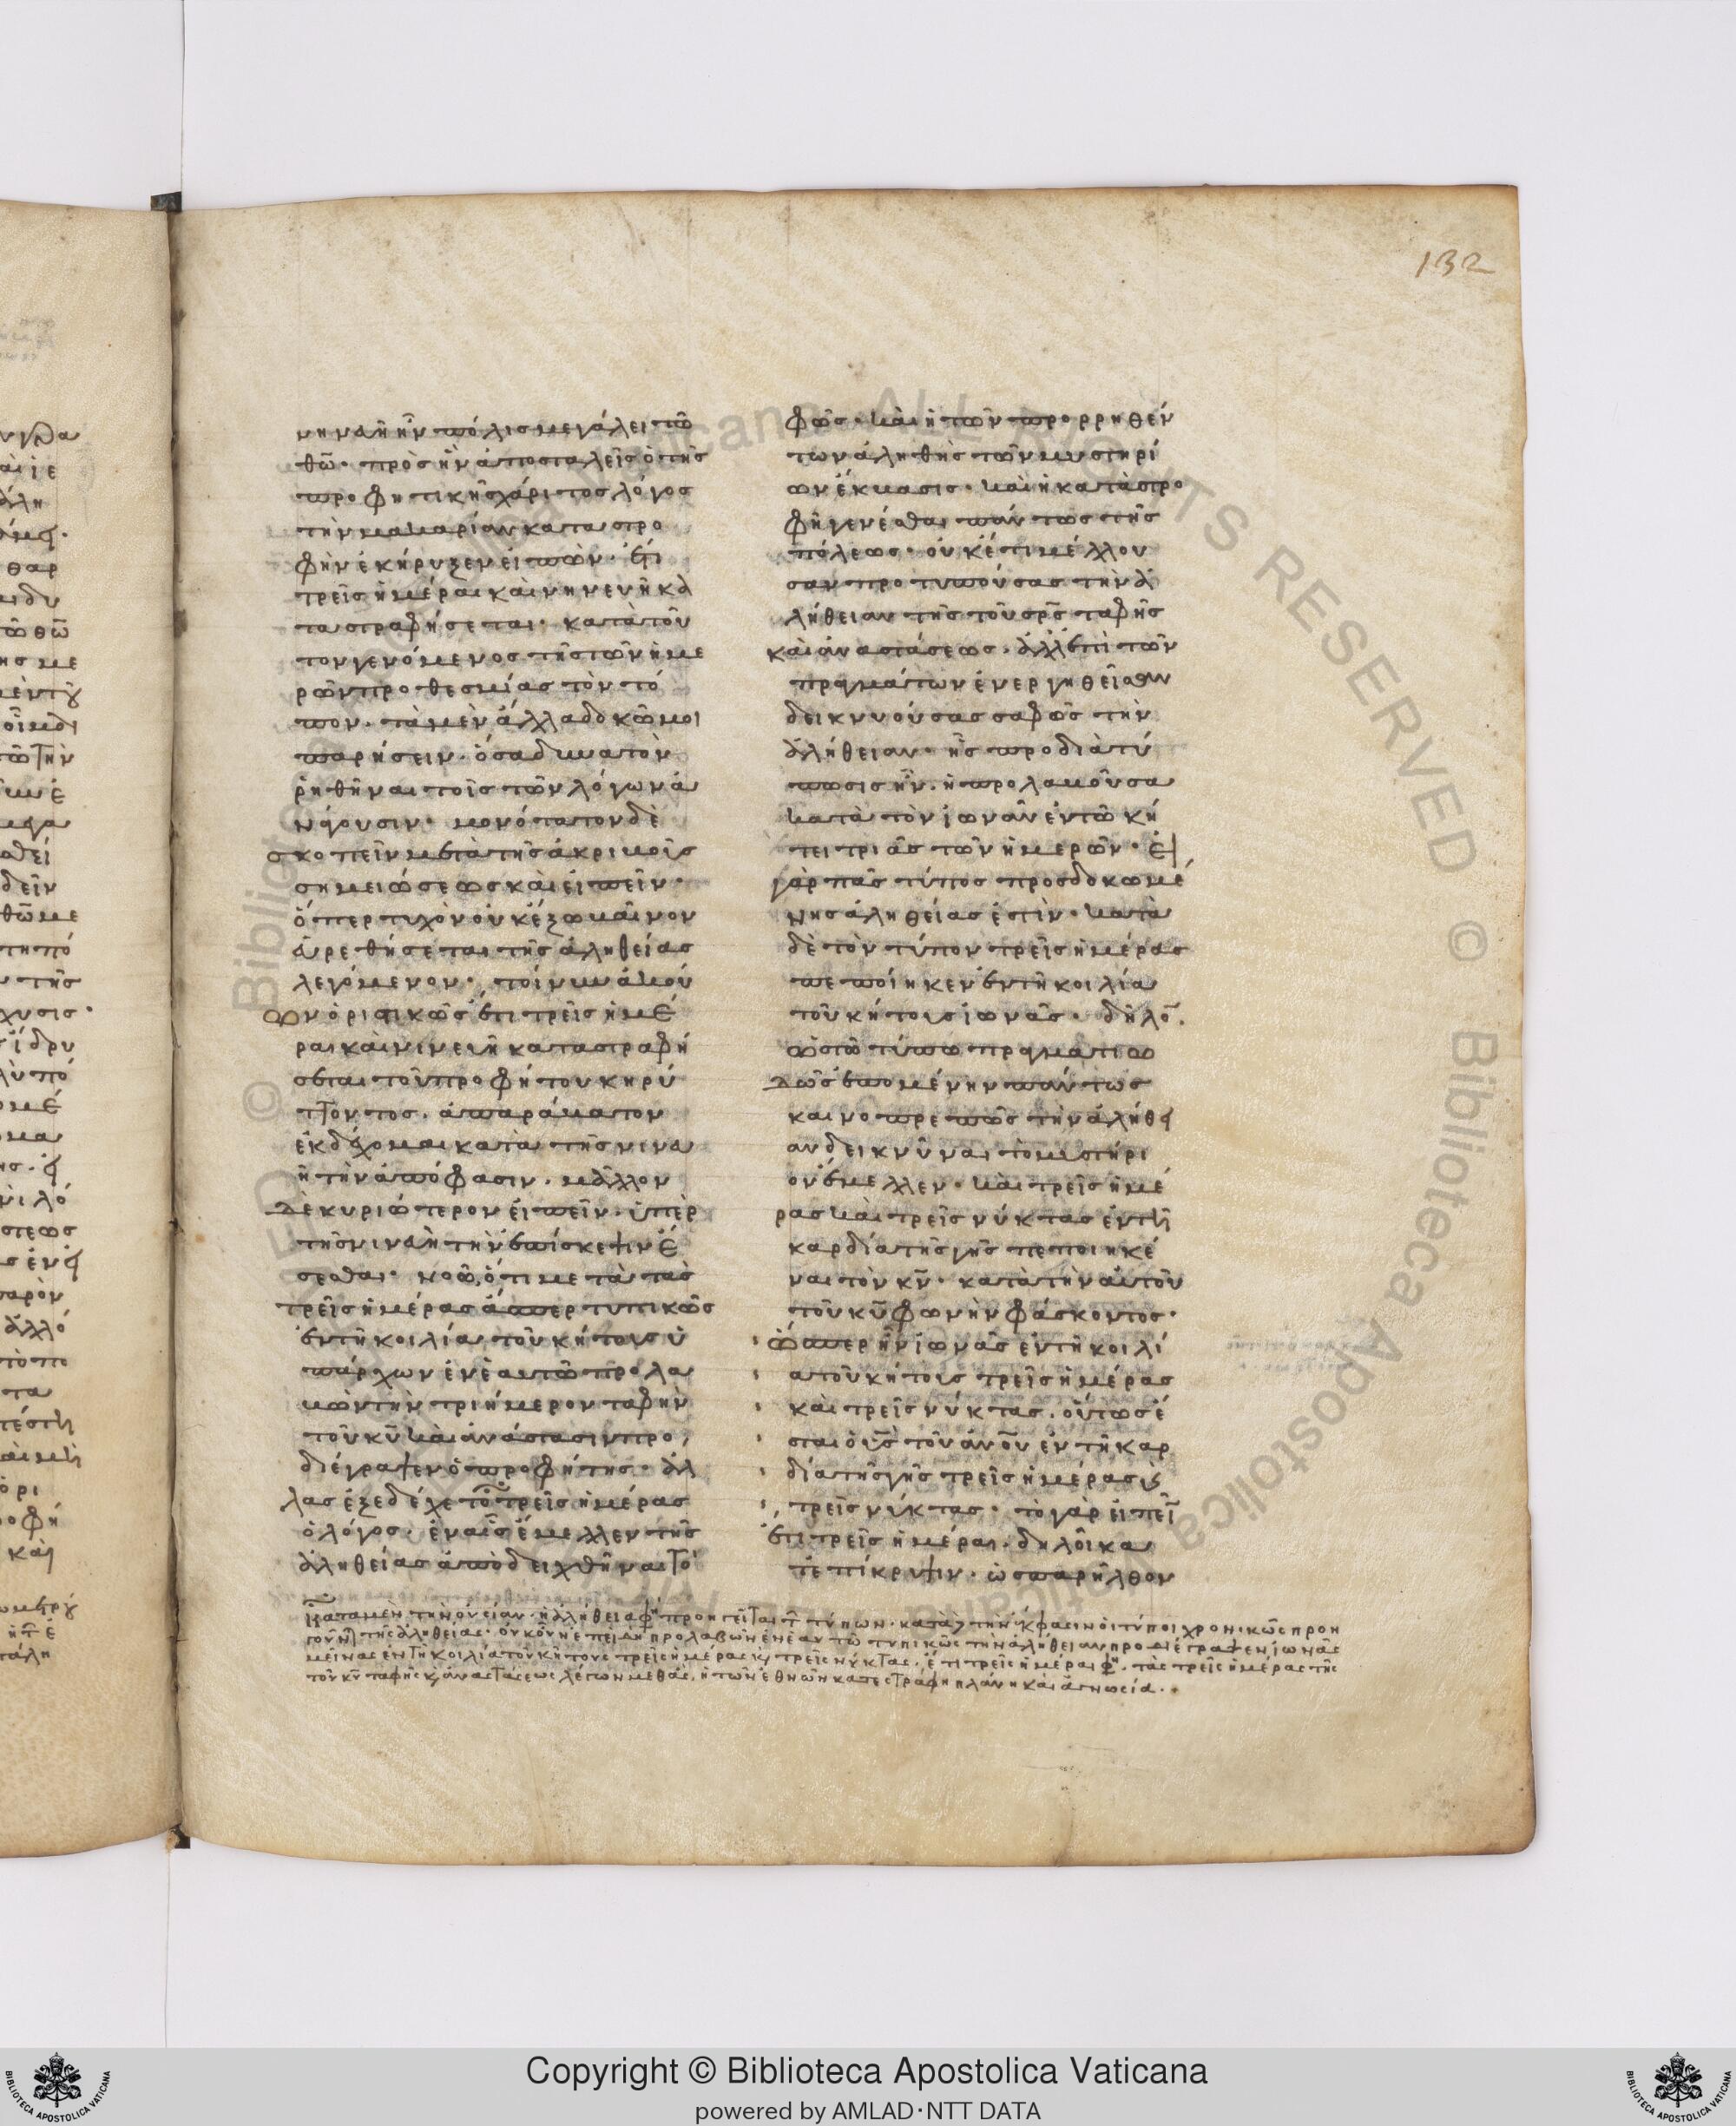 132
νηναῆ ἣν πόλις μεγάλει τῶ
θῶ· πρὸς ἣν ἀποσταλεῖς ὁ τῆς
προφητικῆς χάριτος λόγος
τὴν μακαρίαν καταστρο
φὴν ἐκήρυξεν εἰπὼν· ἔτι
τρεῖς ἡμέραι καὶ νηνευῆ κα
ταστραφήσεται· κατὰ τοῦ
τον γενόμενος τῆς τῶν ἡμε
ρῶν προθεσμίας τὸν τό
πον· τὰ μὲν ἄλλα δοκῶ μοι
παρήσειν· ὅσα δυνατὸν
ῥηθῆναι τοῖς τῶν λόγων ἀ
κούουσιν· μονότατον δὲ
σκοπεῖν μετὰ τῆς ἀκριβοῦς
σημειώσεως καὶ εἰπεῖν·
ὅπερ τυχὸν οὐκ ἔξω καινον
εὑρεθήσεται τῆς ἀληθείας
λεγόμενον· τοίνυν ἀκού
ων ὁριστικῶς ἔτι τρεῖς ἡμέ
ραι καὶ νινευὴ καταστραφή
σεται τοῦ προφήτου κηρύ
ττοντος· ἀπαράβατον
ἐκδέχομαι κατὰ τῆς νινευ
ῆ τὴν ἀπόφασιν· μᾶλλον
δὲ κυριώτερον εἰπεῖν· ὑπὲρ
τῆς νιναῆ τὴν ἐπίσκεψιν ἔ
σεσθαι· νοῶ, ὅτι μετὰ τὰς
τρεῖς ἡμέρας ἅσπερ τυπικῶς
ἐν τῆ κοιλία τοῦ κήτους ὑ
πάρχων ἐν ἑαυτῶ προλα
βὼν τὴν τριήμερον ταφὴν
τοῦ κῦ καὶ ἀνάστασιν προ,
διέγραψεν ὁ προφήτης· ἄλ
λας ἐξεδέχετο τρεῖς ἡμέρας
ὁ λόγος· ἐν αἷς ἔμελλεν τῆς
ἀληθείας ἀποδειχθῆναι τὸ
φῶς· καὶ ἡ τῶν προρρηθέν
των ἀληθὴς τῶν μυστηρί
ων ἔκβασις· καὶ ἡ καταστρο
φὴ γενέσθαι πάντως τῆς
πόλεως· οὐκέτι μέλλου
σαν προτυπούσας τὴν ἀ
λήθειαν τῆς τοῦ σρς ταφῆς
καὶ ἀναστάσεως· ἀλλ' ἐπὶ τῶν
πραγμάτων ἐνεργηθεῖσαν
δεικνυούσας σαφῶς τὴν
ἀλήθειαν· ἧς προδιατύ
πωσις ἦν· ἡ προλαβοῦσα
κατὰ τὸν ἰωνᾶν ἐν τῶ κή
τει τριὰς τῶν ἡμερῶν· εἰ
γὰρ πᾶς τύπος προσδοκωμέ
νης ἀληθείας ἐστὶν· κατὰ
δὲ τὸν τύπον τρεῖς ἡμέρας
πεποίηκεν ἐν τῆ κοιλία
τοῦ κήτους ἰωνᾶς· δῆλο.
ὡς τῶ τύπω πραγματιω
δῶς ἑπομένην πάντως
καινοπρεπῶς τὴν ἀλήθει
αν δεικνύναι τὸ μυστήρι
ον ἔμελλεν· καὶ τρεῖς ἡμέ
ρας καὶ τρεῖς νύκτας ἐν τῆ
καρδία τῆς γῆς πεποιηκέ
ναι τὸν κν· κατὰ τὴν αὐτοῦ
τοῦ κῦ φωνὴν φάσκοντος·
ὥσπερ ἦν ἰωνᾶς ἐν τῆ κοιλί
α τοῦ κήτους τρεῖς ἡμέρας
καὶ τρεῖς νύκτας· οὕτως ἔ
σται ὁ υς τοῦ ἀνου ἐν τῆ καρ
δία τῆς γῆς τρεῖς ἡμέρας κ
τρεῖς νύκτας· τὸ γὰρ εἰπεῖ
ἔτι τρεῖς ἡμέραι· δηλοῖ κα
τ' ἐπίκρυψιν· ὡς παρῆλθον
Κατα μὲν τὴν οὐσίαν· ἡ ἀλήθεια φη προηγεῖται τ τύπων· κατὰ τὴν ἔκφασιν οἱ τύποι χρονικῶς προη
γοῦν τῆς ἀληθείας· οὐκοῦν ἐπειδὴ προλαβὼν ἐν ἑαυτῶ τυπικῶς τὴν ἀλήθειαν προδιέγραψεν ἰωνᾶς
μείνας ἐν τῆ κοιλία τοῦ κήτους τρεῖς ἡμέρας κ τρεῖς νύκτας· ἔτι τρεῖς ἡμέραι φη· τὰς τρεῖς ἡμέρας τῆς
τοῦ κυ ταφῆς κ ἀναστάσεως λέγων μεθ' ἃς, ἡ τῶν ἐθνῶν κατεστράφη πλάνη καὶ ἀγνωσία·
Copyright © Biblioteca Apostolica Vaticana
powered by AMLAD·NTT DATA